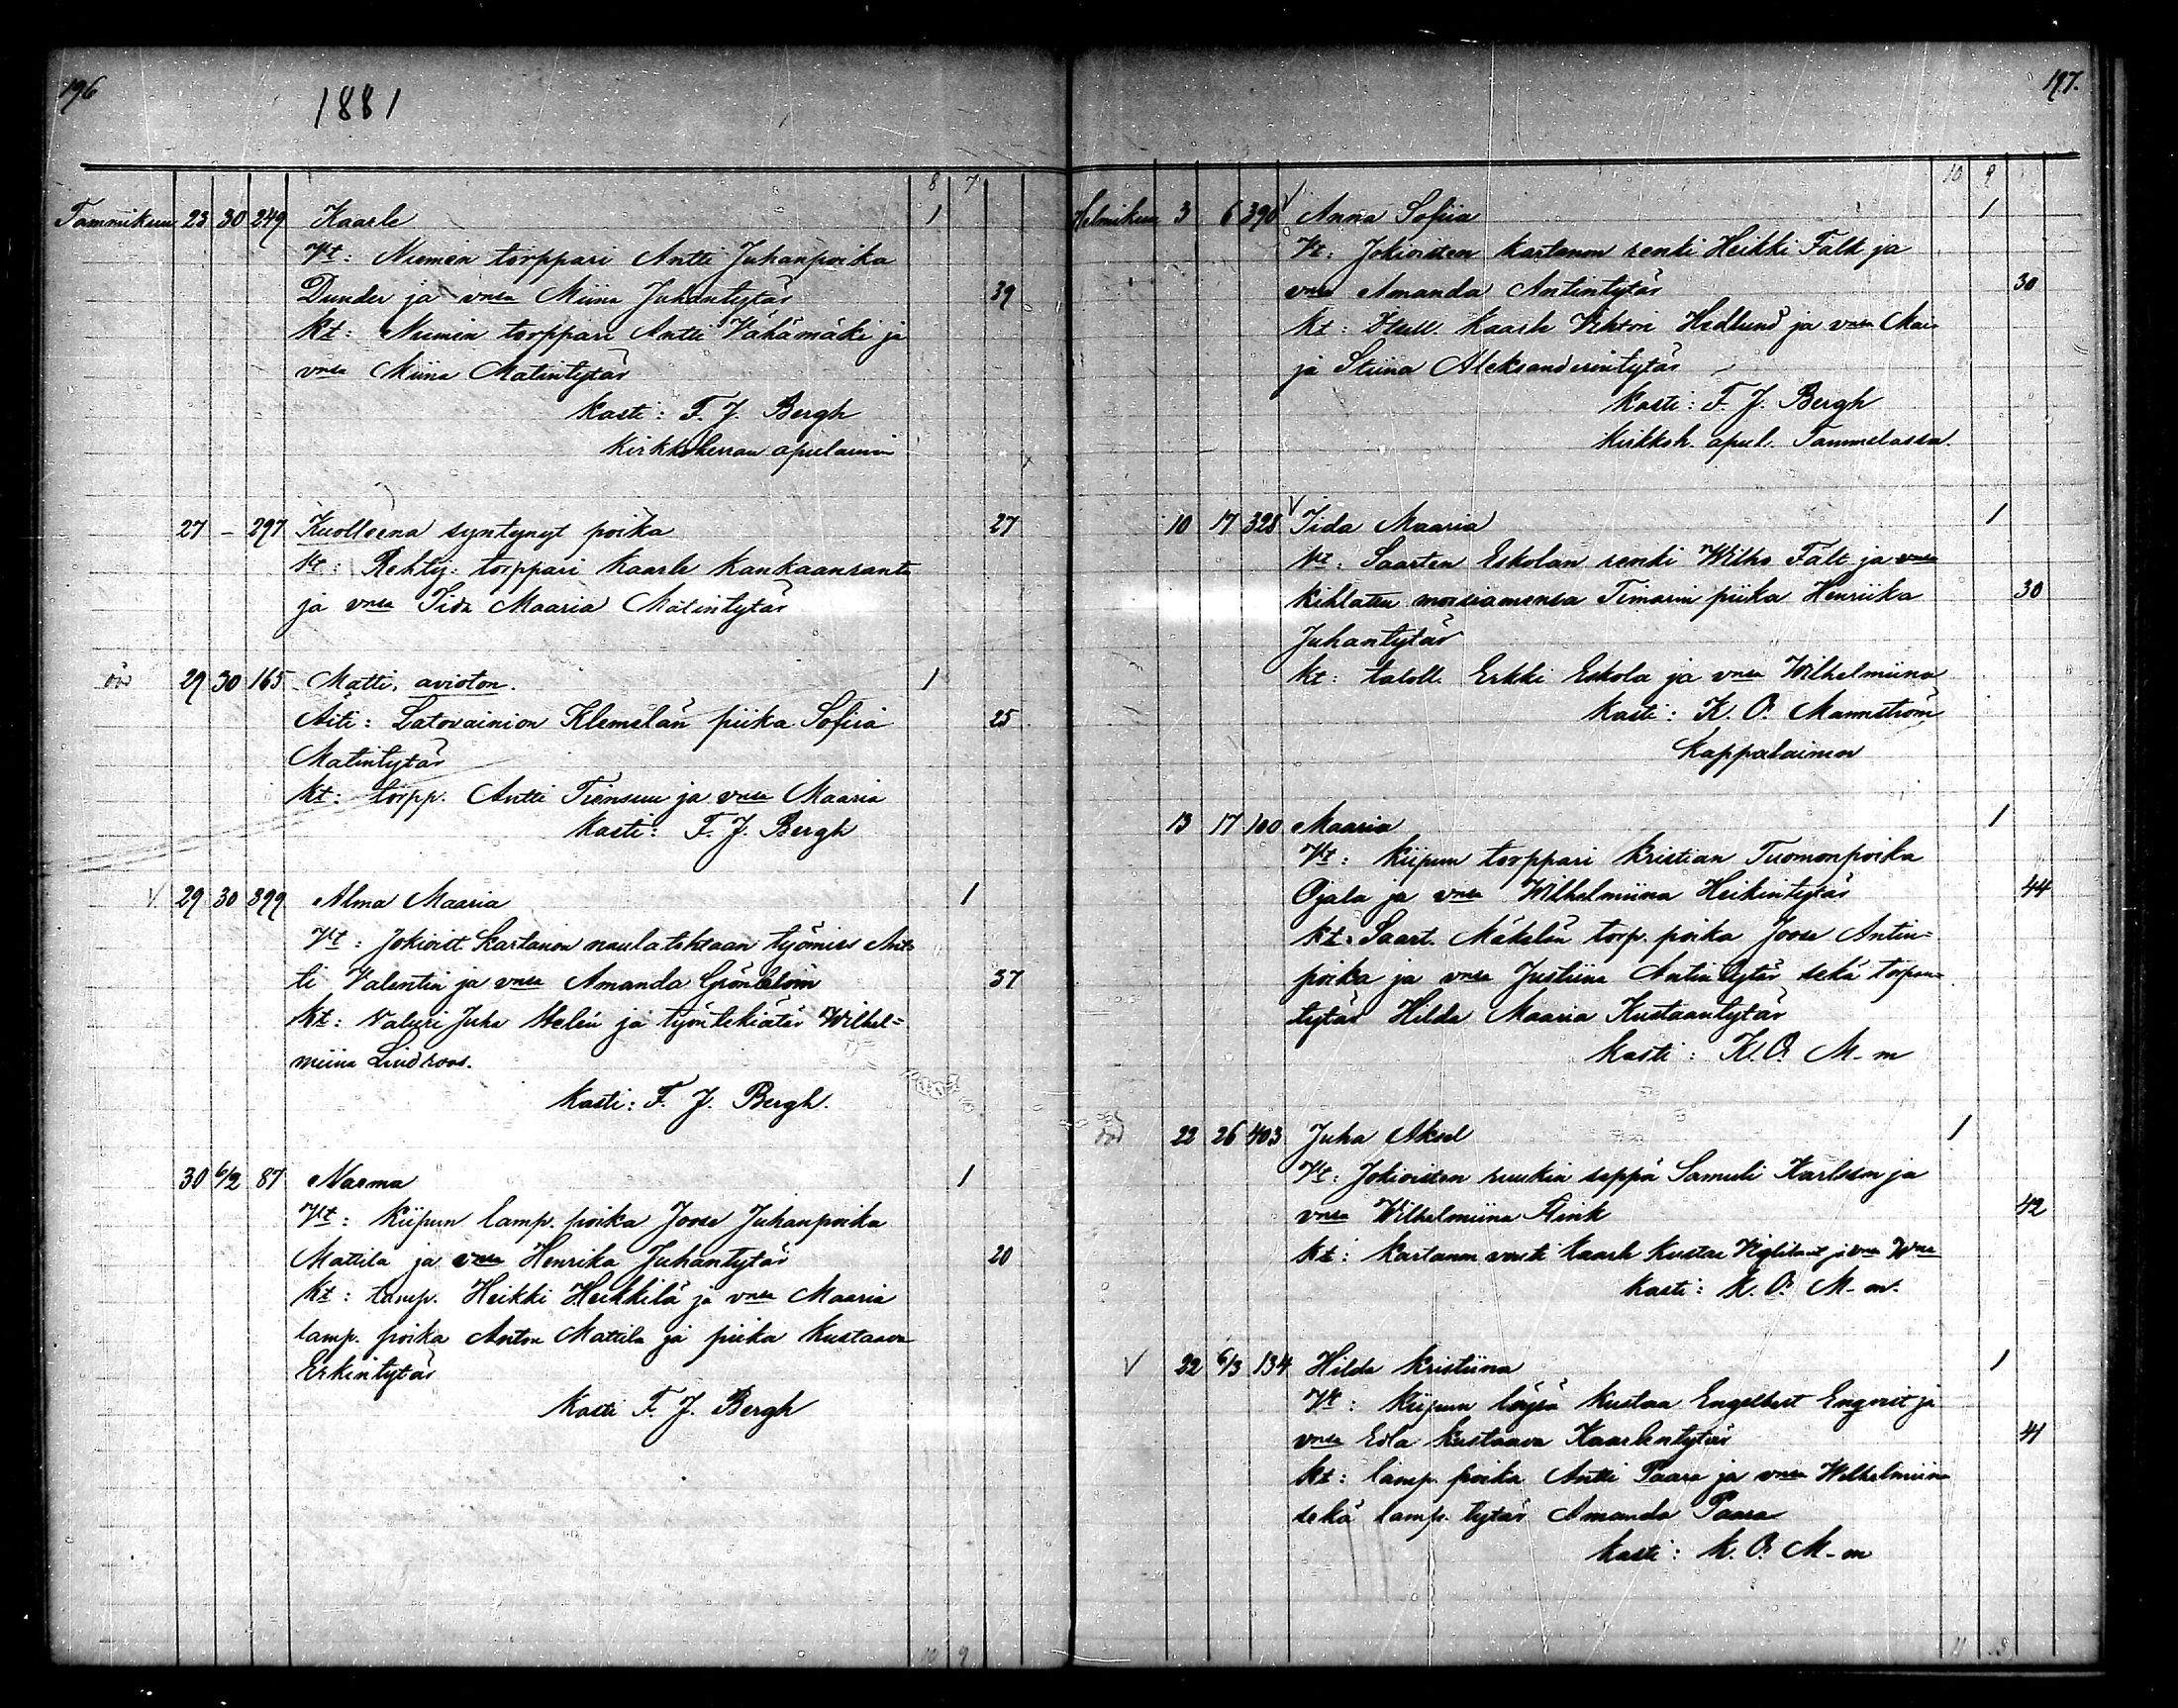 196
1881
8 7
Tammikuu 23 30 249 Kaarle 1
Vt: Niemen torppari Antti Juhanpoika
Dunder ja vmsa Miina Juhantytär 39
kt: Niemin torppari Antti Vähämäki ja
vmsa Miina Matintytär
kasti: F. J. Bergh
kirkkoherran apulainen
27 – 297 Kuolleena syntynyt poika 27
Vt: Rehtij. torppari Kaarle Kankaanranta
ja vmsa Iida Maaria Matintytär
29 30 165 Matti, avioton. 1
Äiti: Latovainion Klemelän piika Sofiia 25
Matintytär
kt: torpp. Antti Tiensuu ja vmsa Maaria
kasti: F. J. Bergh
V. 29 30 399 Alma Maaria 1
Vt: Jokioist. kartanon naulatehtaan työmies Ant-
ti Valentin ja vmsa Amanda Grönblom 37
kt: Valuri Juha Helén ja työntekiätär Wilhel=
miina Lindroos.
kasti: F. J. Bergh.
30 6/2 87 Naema 1
Vt: Kiipun lamp. poika Joose Juhanpoika
Mattila ja vmsa Henrika Juhantytär 20
kt: lamp. Heikki Heikkilä ja vmsa Maaria
lamp. poika Anton Mattila ja piika Kustaava
Erkintytär
Kasti F. J. Bergh
10 9
197.
10 9
Helmikuu 3 6 390 V Anna Sofiia 1
Vt: Jokioisten kartanon renki Heikki Fält ja
vmsa Amanda Antintytär 30
kt: Kaarle Vihtori Hedlund ja vmsa Mai-
ja Stiina Aleksanderintytär
kasti: F. J. Bergh
kirkkoh. apul. Tammelassa.
10 17 328 V Iida Maaria 1
Vt: Saarten Eskolan renki Wilho Fält ja vmsa
kihlattu morsiamensa Timarin piika Henriika 30
Juhantytär
kt: taloll. Erkki Eskola ja vmsa Wilhelmiina
kasti: K. O. Mannström
Kappalainen
13 17 100 Maaria 1
Vt: Kiipun torppari Kristian Tuomonpoika
Ojala ja vmsa Wilhelmiina Heikintytär 44
kt: Saart. Mäkelän torp. poika Joose Antin=
poika ja vmsa Justiina Antintytär sekä torpan=
tytär Hilda Maaria Kustaantytär
kasti: K. O. M–m
22 26 403 Juha Aksel 1
Vt: Jokioisten ruukin seppä Samuli Karlsson ja
vmsa Wilhelmiina Flink 42
kt: Kartanon vouti Kaarle Kustaa ja vmsa
kasti: K. O. M–m.
V 22 6/3 134 Hilda Kristiina 1
Vt: Kiipun löysä Kustaa Engelbert Engvist ja
vmsa Edla Kustaava Kaarlentytär 41
kt: lamp. poika Antti Paara ja vmsa Wilhelmiina
sekä lamp. tytär Amanda Paara
kasti: K. O. M–m
11